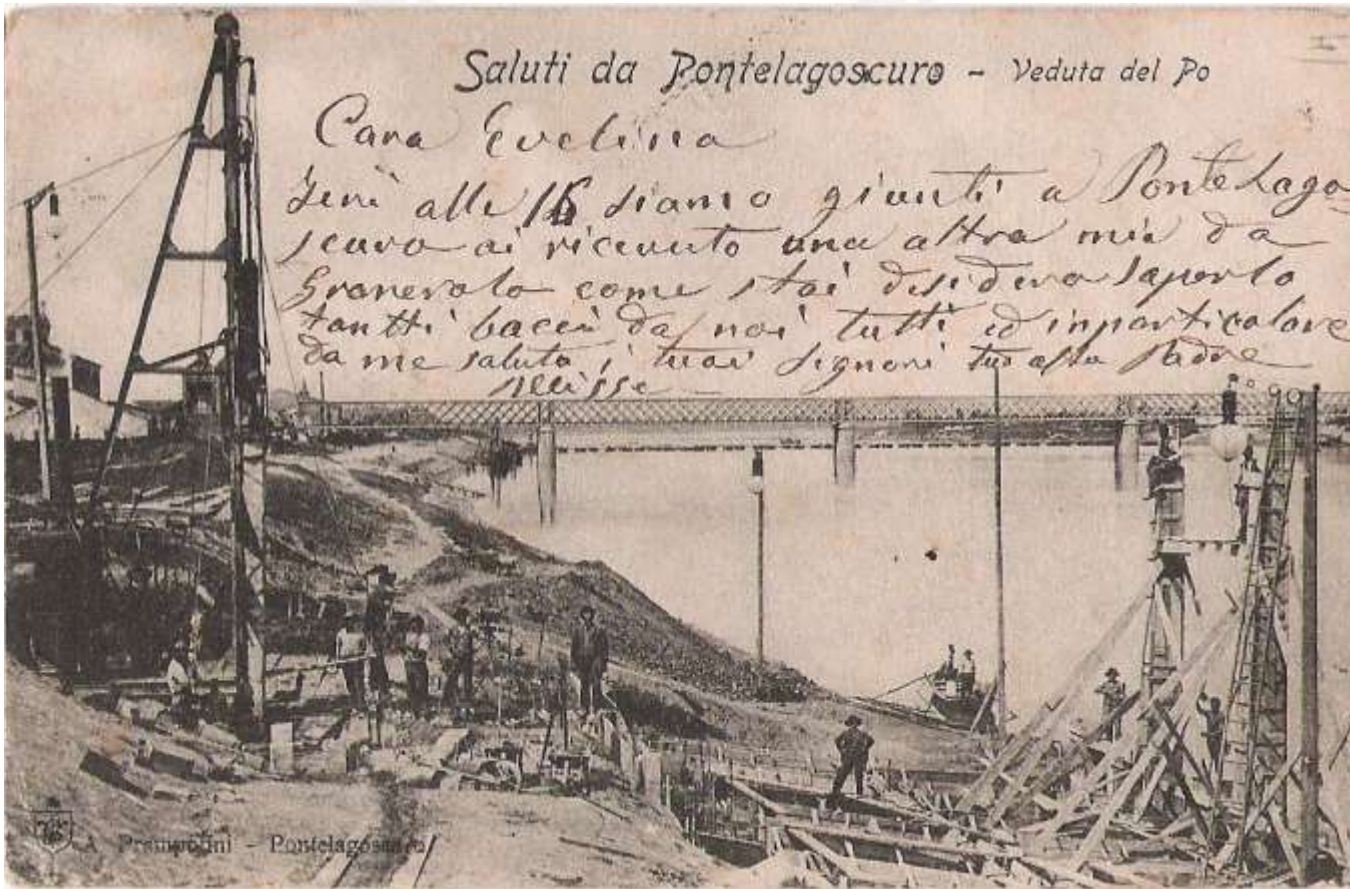 Saluti da Pontelagoscuro - Veduta del Po
Cara Evelina
Ieri alle 16 siamo giunti a Ponte Lago
scuro ai ricevuto una altra mia da
Granerolo come stai desidero saperlo
tantti bacci da noi tutti ed inparticolare
da me saluta i tuoi signori tuo affo Padre
Ulisse
A. Prampolini - Pontelagoscuro